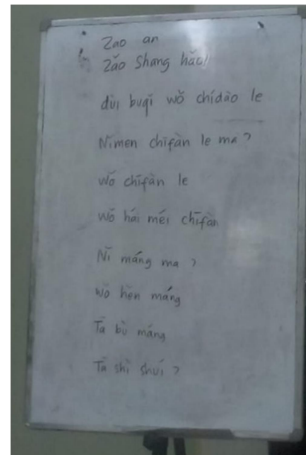 Zao an
Zǎo Shang hǎo!
dùi buqǐ wǒ chídào le
Nǐmen chīfàn le ma?
Wǒ chīfàn le
Wǒ hái méi chīfàn
Nǐ máng ma?
Wǒ hěn máng
Tā bù máng
Tā shì shuí?